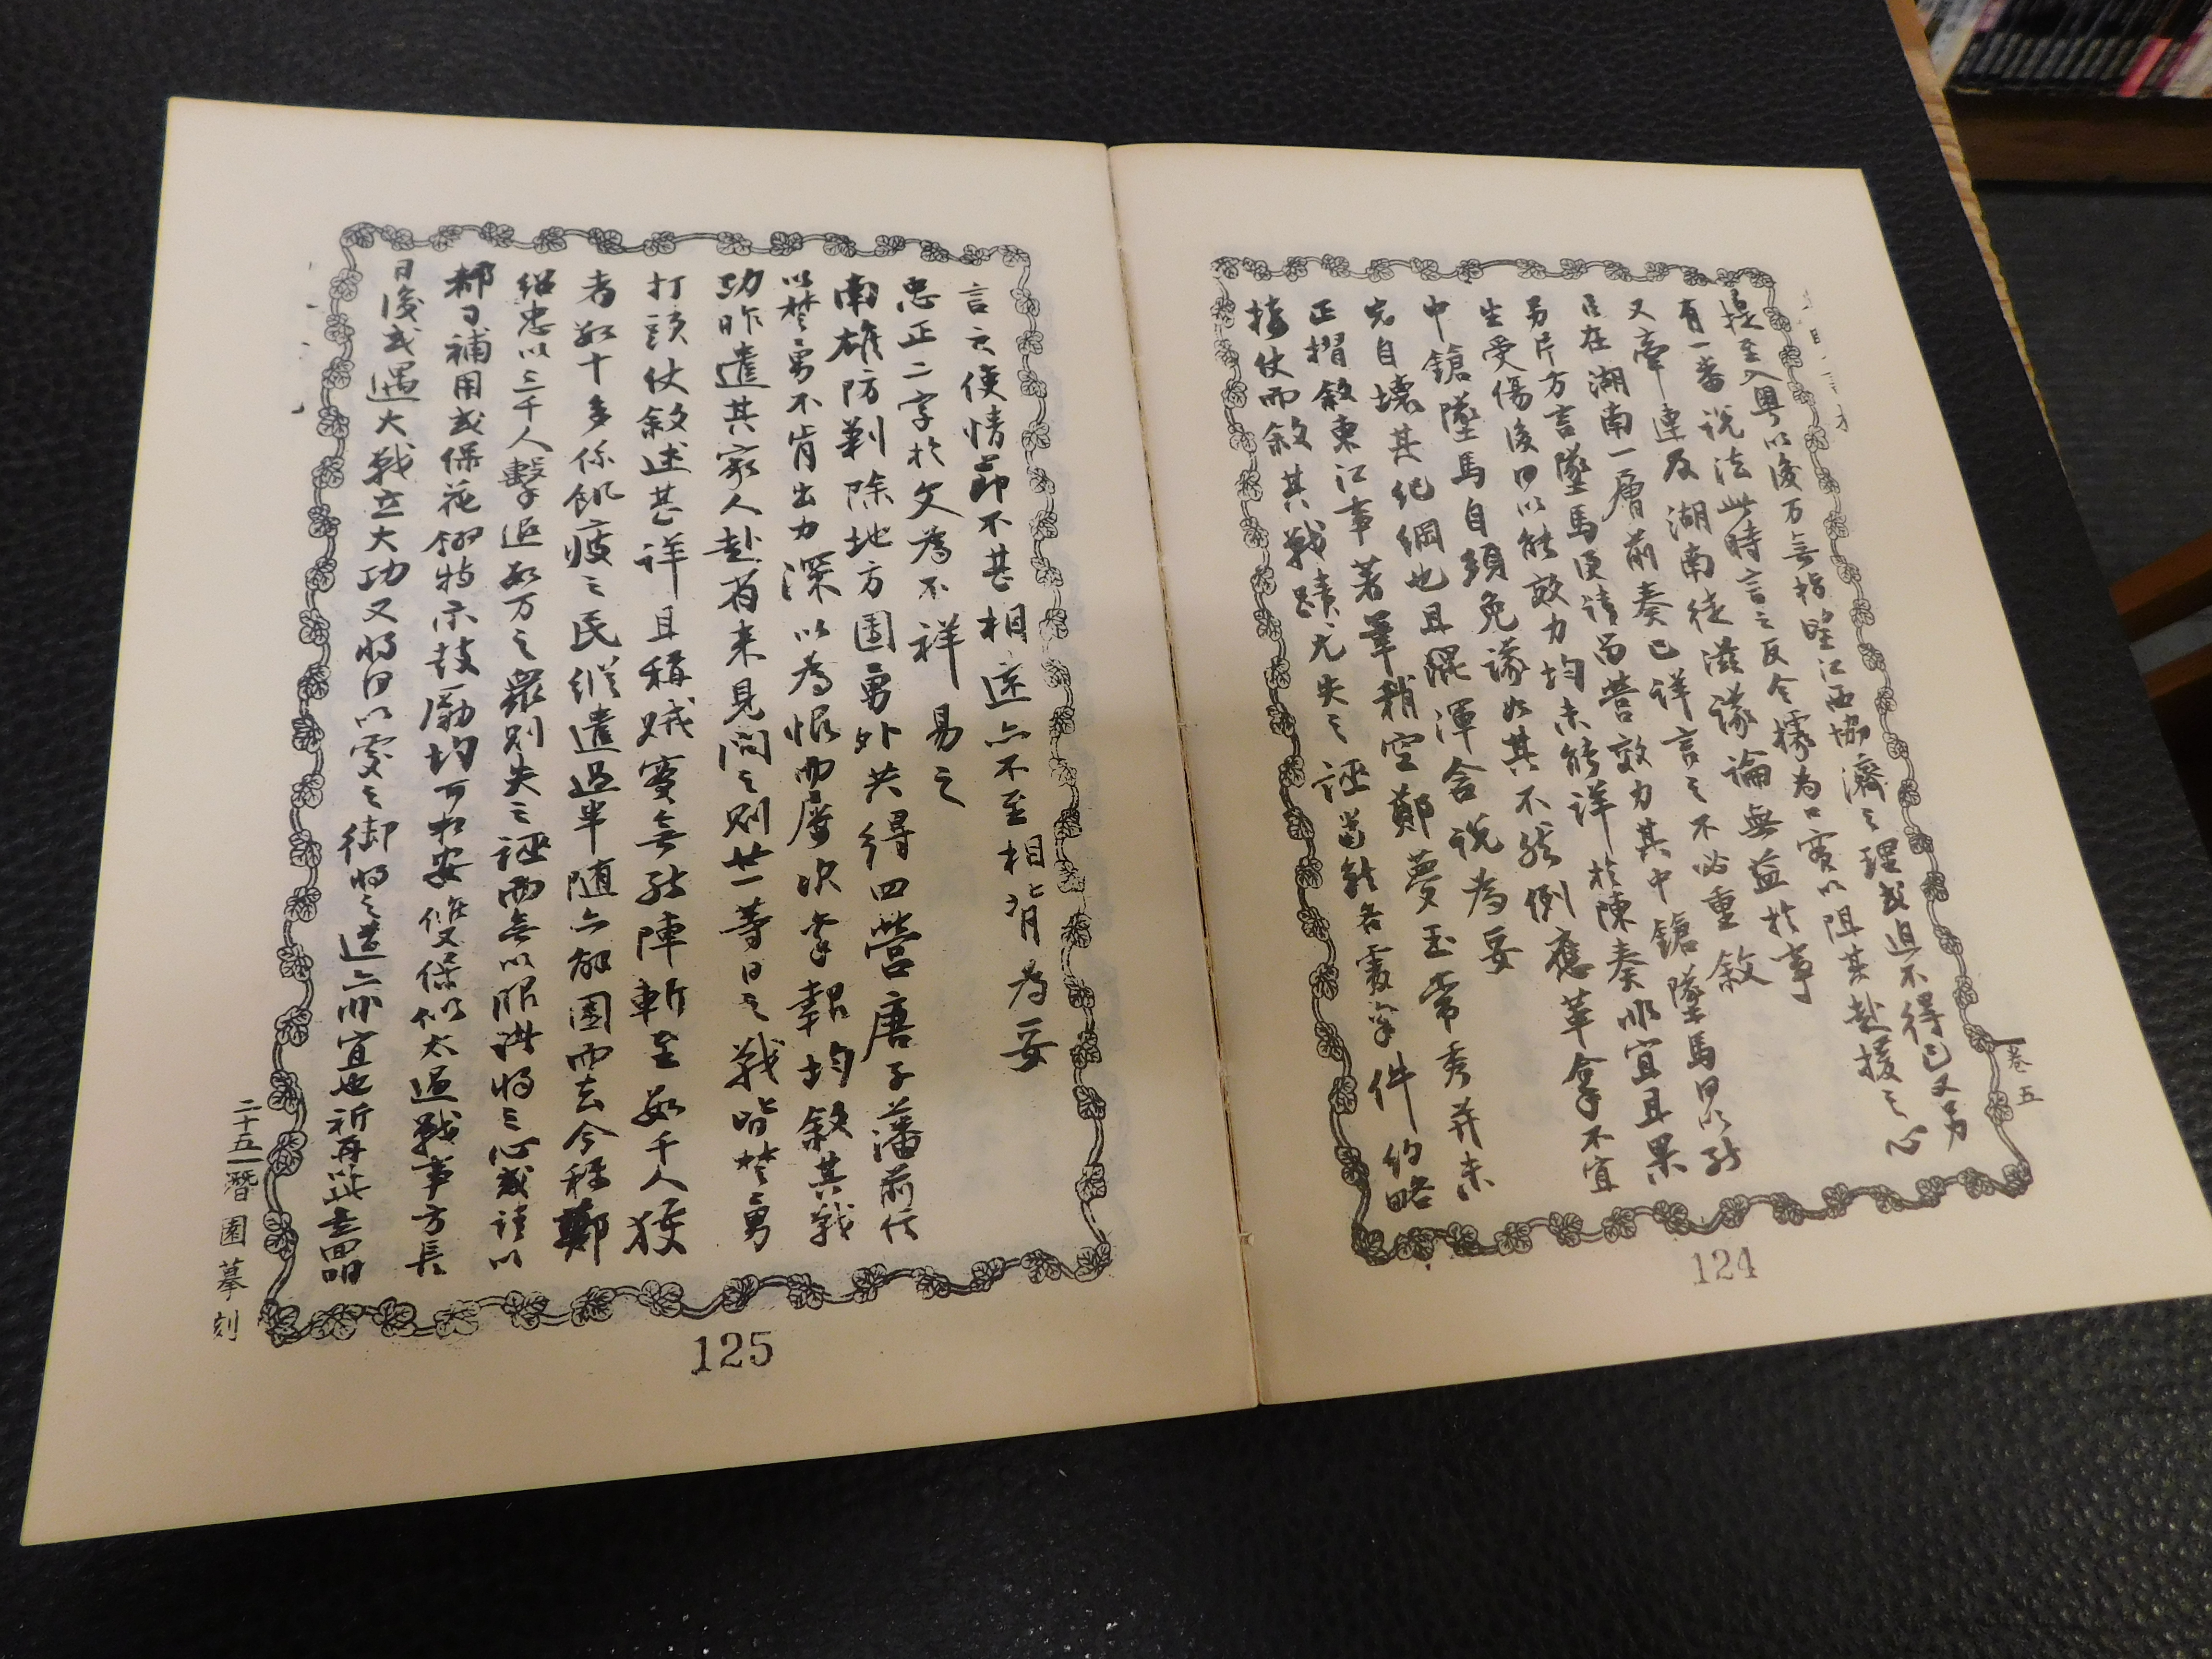 卷五
提至入粵以後万無指望江西協濟之理或迫不得已又另
有一番說法此時言之反令據為口實以阻其赴援之心
又牽連及湖南徒滋議論無益於事
在湖南一層前奏已詳言之不必重敘
另片方言墜馬便請留營效力其中鎗墜馬何以能
生受傷後何以能效力均未能詳於陳奏似宜且果
中鎗墜馬自須免議如其不然例應革拿不宜
先自壞其紀綱也且混渾含說為妥
正摺敘東江事著筆稍空鄭夢玉常秀并未
接仗而敘其戰蹟尤失之誣當能各處拿件約略
124
言之使情節不甚相遠亦不至相背為妥
忠正二字於文為不祥易之
南雄防剿除地方團勇外共得四營唐子藩前信
以楚勇不肯出力深以為恨而屢次拿報均敘其戰
功昨遣其家人赴省來見問之則廿一等日之戰皆楚勇
打頭仗敘述甚詳且稱賊實無能陣斬至數千人獲
者數十多係飢疲之民縱遣過半隨亦解團而去今程鄭
紹忠以三千人擊退數万之眾則失之誣而無以服洪將之心或請以
都司補用或保花翎特示鼓勵均可相安雙保似太過戰事方長
日後或遇大戰立大功又將何以處之御將之道亦宜也祈再此
125
二十五
暦園摹刻